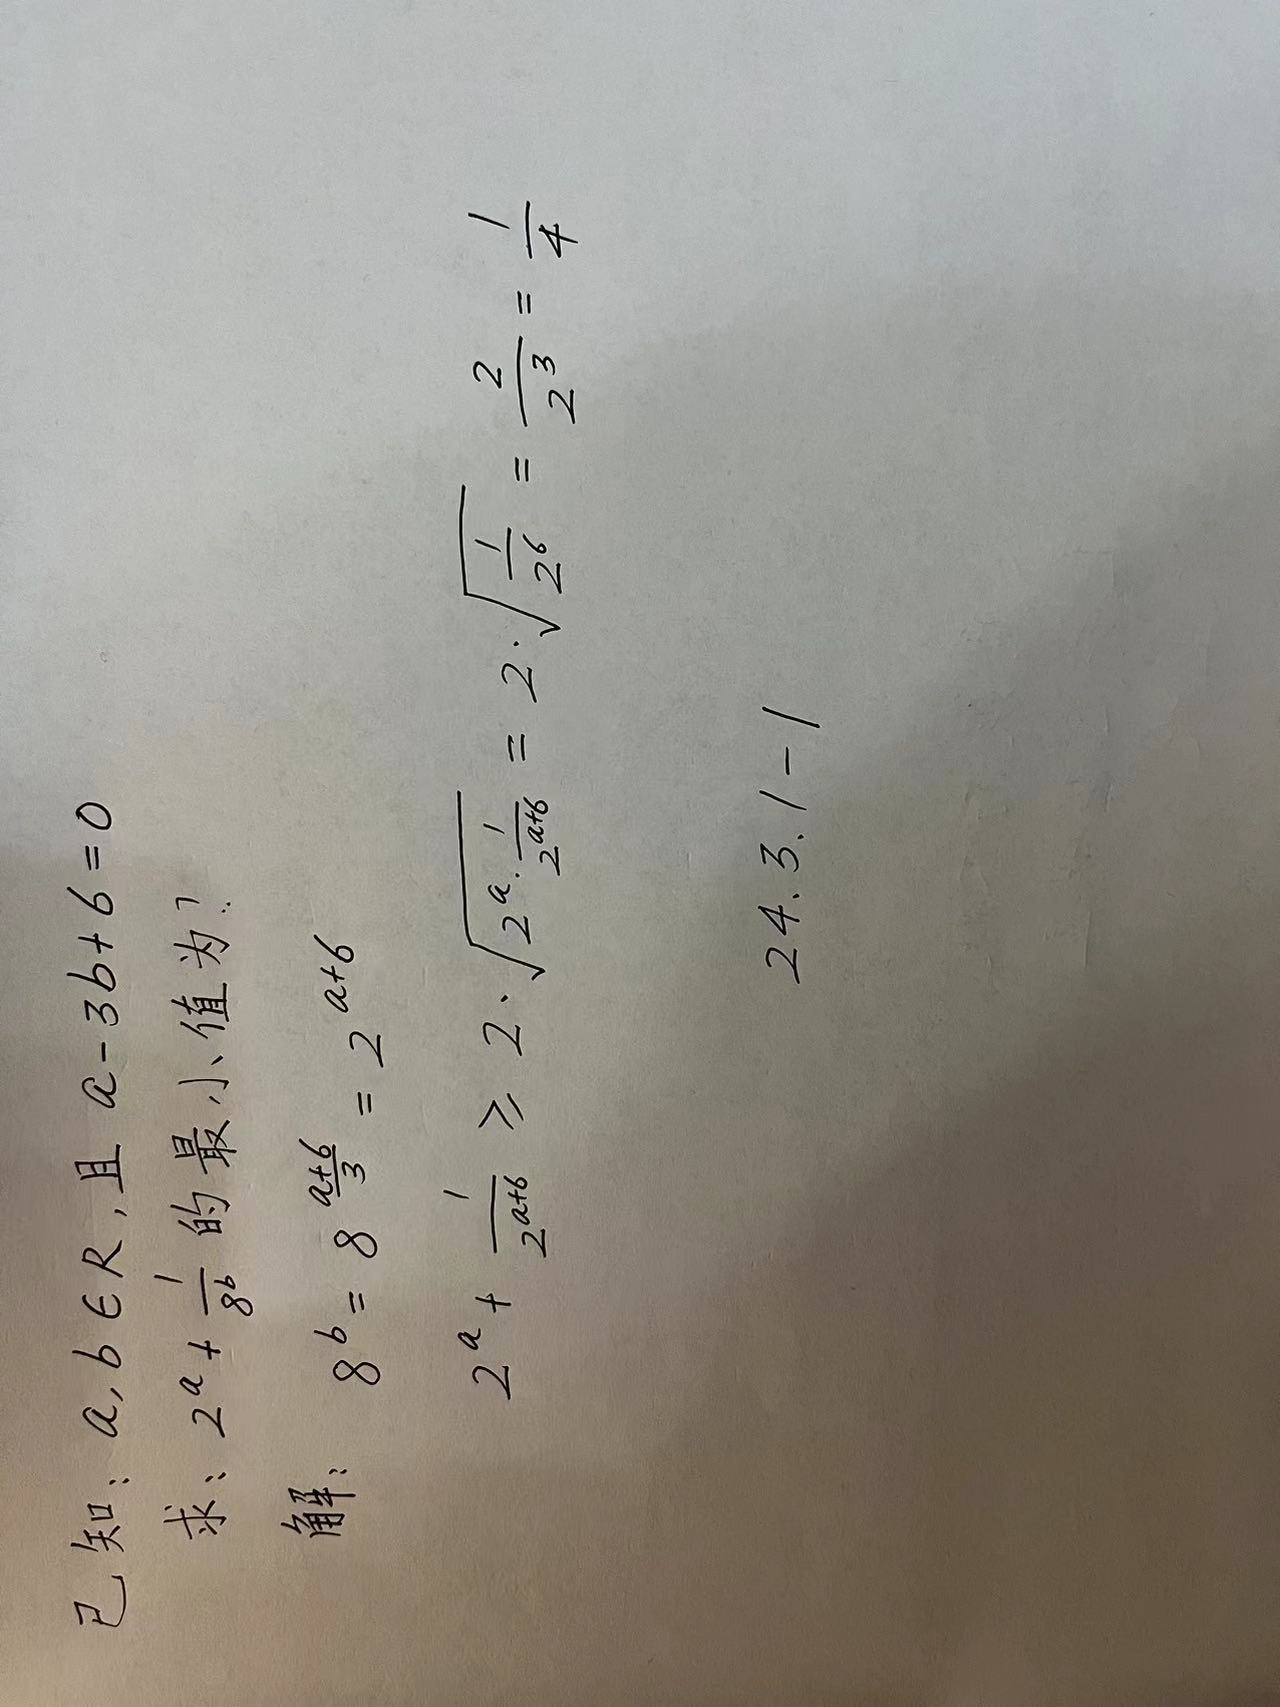 已知: a, b ∈ R, 且 a - 3b + 6 = 0
求: 2^a + 1/8^b 的最小值为?
解: 8^b = 8^((a+6)/3) = 2^(a+6)
2^a + 1/2^(a+6) ≥ 2·√(2^a · 1/2^(a+6)) = 2·√(1/2^6) = 2/2^3 = 1/4
24.3.1-1